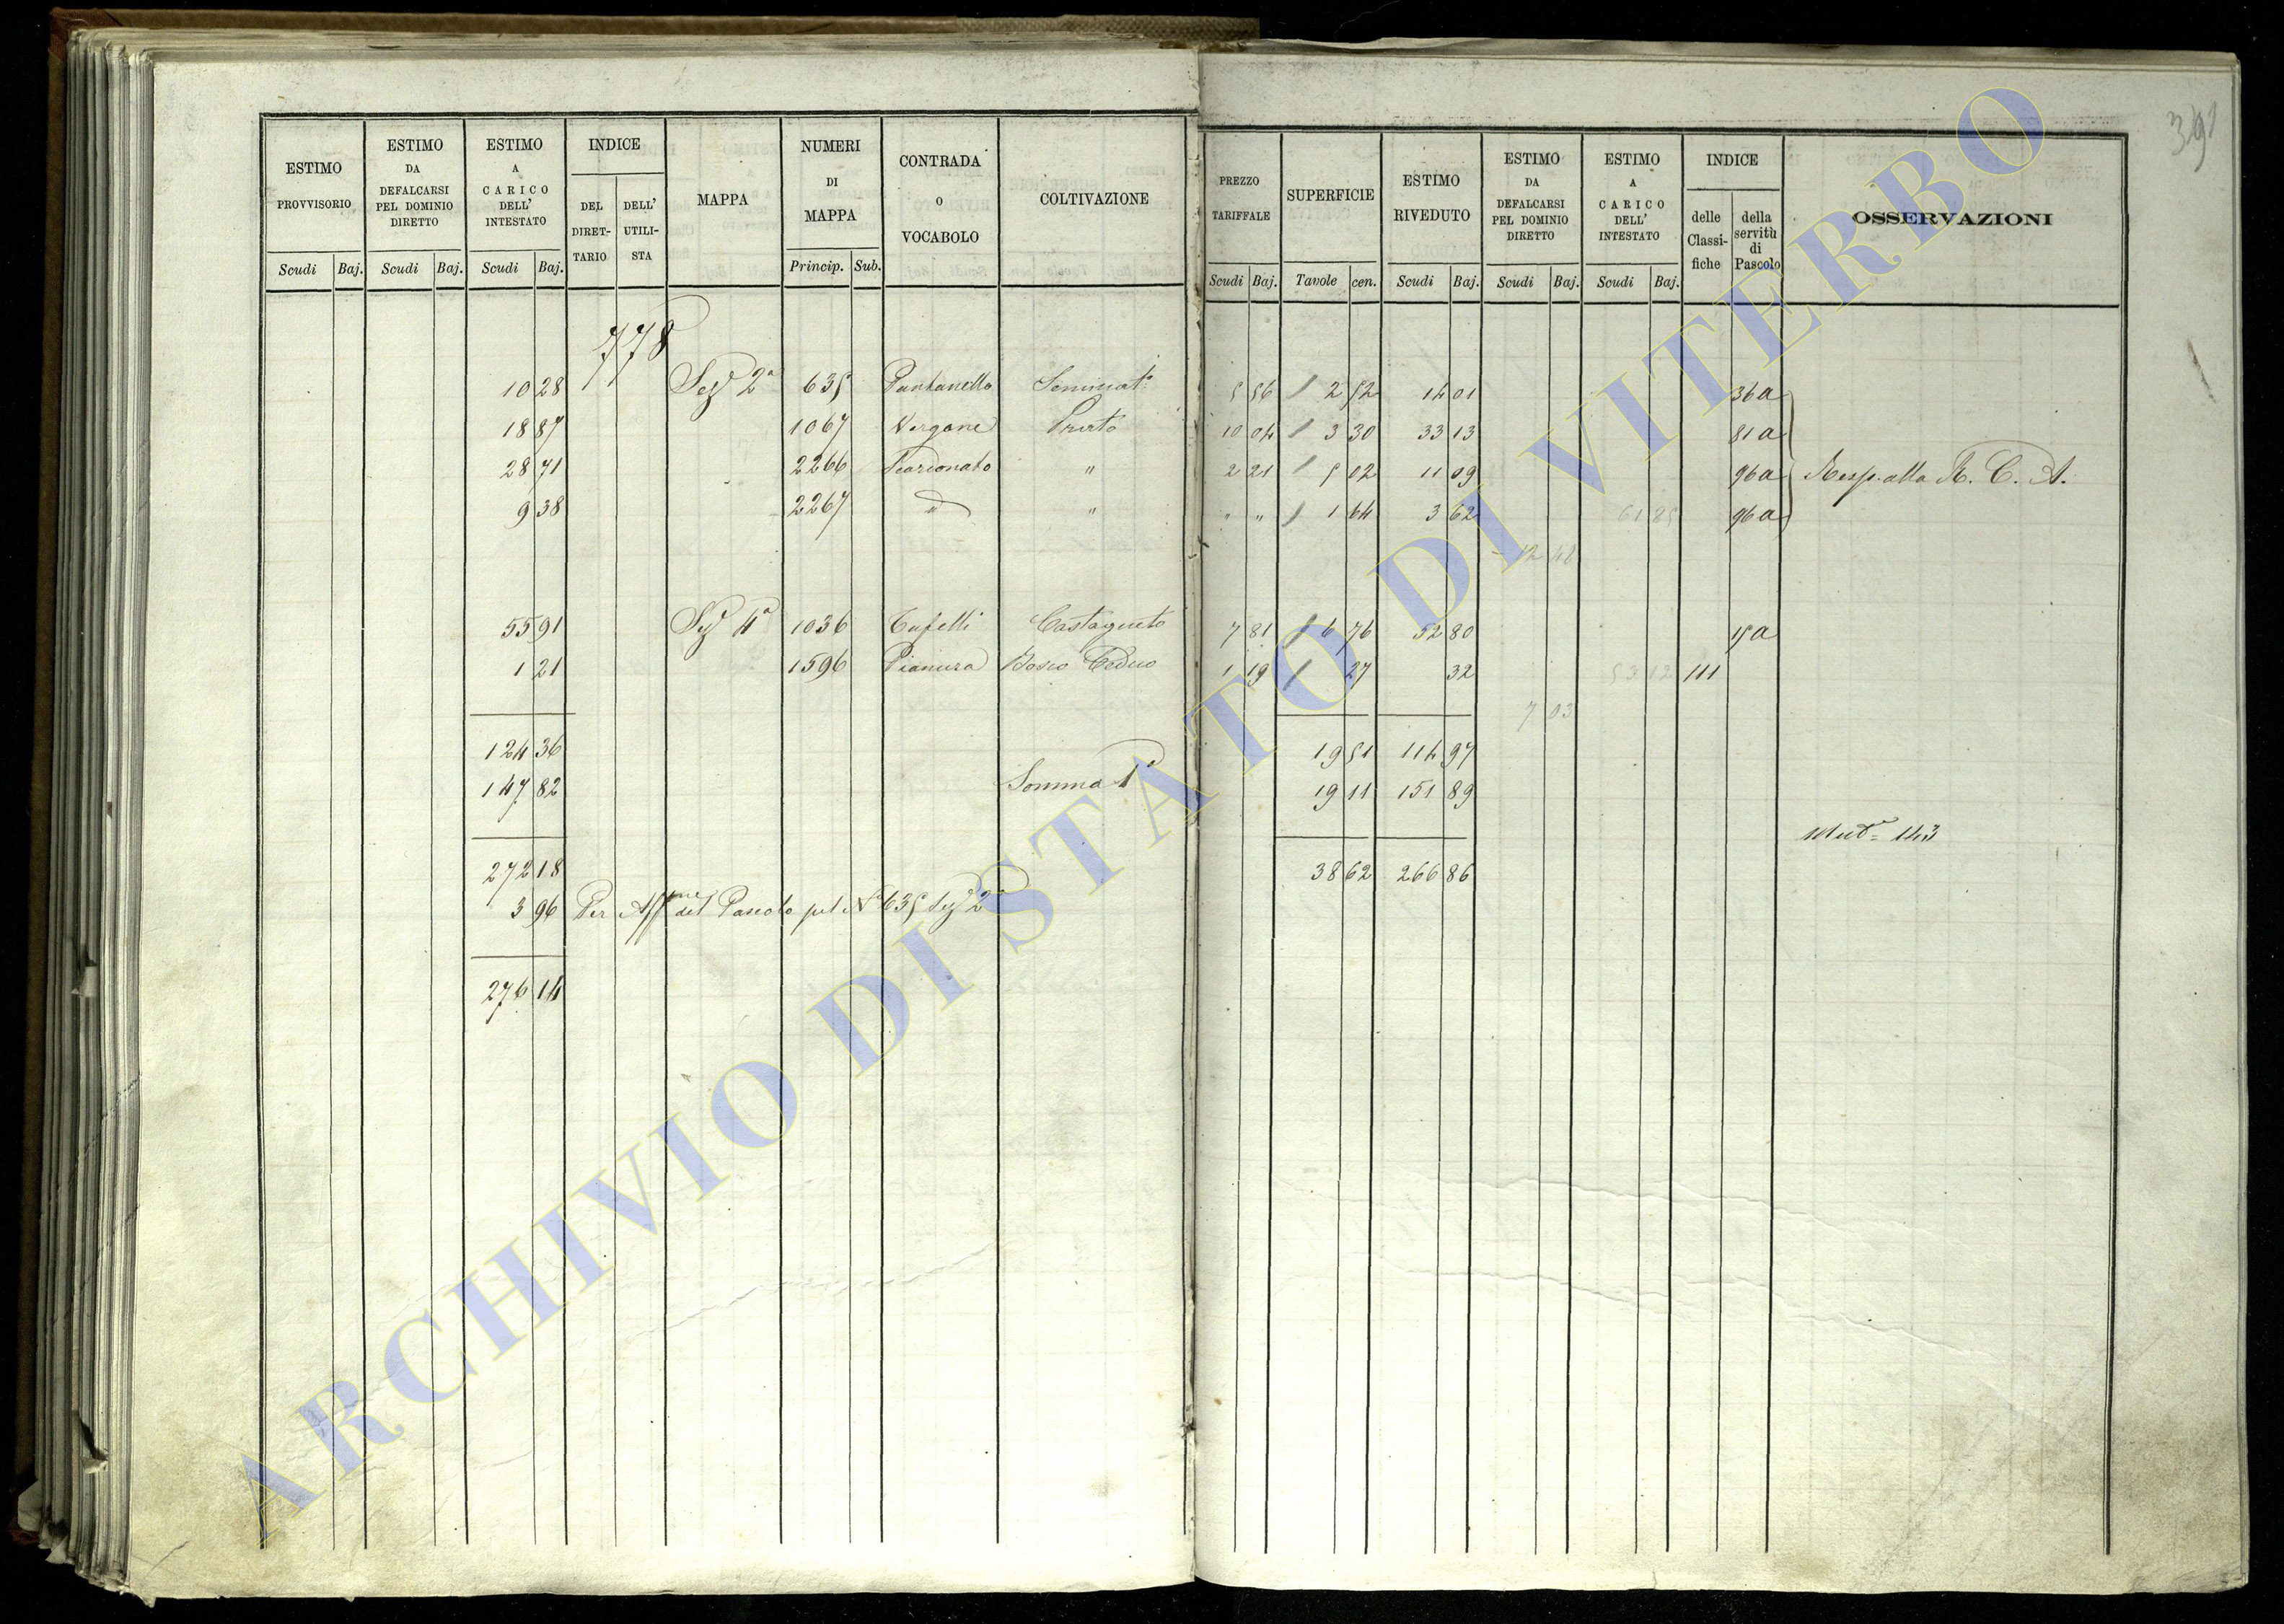 391
ESTIMO PROVVISORIO Scudi Baj.
ESTIMO DA DEFALCARSI PEL DOMINIO DIRETTO Scudi Baj.
ESTIMO A CARICO DELL' INTESTATO Scudi Baj.
INDICE DEL DIRET-TARIO DELL' UTILI-STA
MAPPA
NUMERI DI MAPPA Princip. Sub.
CONTRADA O VOCABOLO
COLTIVAZIONE
PREZZO TARIFFALE Scudi Baj.
SUPERFICIE Tavole cen.
ESTIMO RIVEDUTO Scudi Baj.
ESTIMO DA DEFALCARSI PEL DOMINIO DIRETTO Scudi Baj.
ESTIMO A CARICO DELL' INTESTATO Scudi Baj.
INDICE delle Classi-fiche della servitù di Pascolo
OSSERVAZIONI
778
10 28 Sez 2a 635 Pantanella Seminat.o 5 56 2 52 14 01 36a
18 87 1067 Vergane Prato 10 04 3 30 33 13 81a
28 71 2266 Scarconato " 2 21 5 02 11 09 96a Resp. alla R. C. A.
9 38 2267 " " " " 1 64 3 62 61 85 96a
12 48
55 91 Sez 4a 1036 Tufelli Castagneto 7 81 6 76 52 80 15a
1 21 1596 Pianura Bosco Ceduo 1 19 27 32 53 12 111
7 03
124 36 19 51 114 97
147 82 Somma 1a 19 11 151 89
Mut.e 143
272 18 38 62 266 86
3 96 Per Aff.ne del Pascolo pel No 635 Sez 2a
276 14
ARCHIVIO DI STATO DI VITERBO